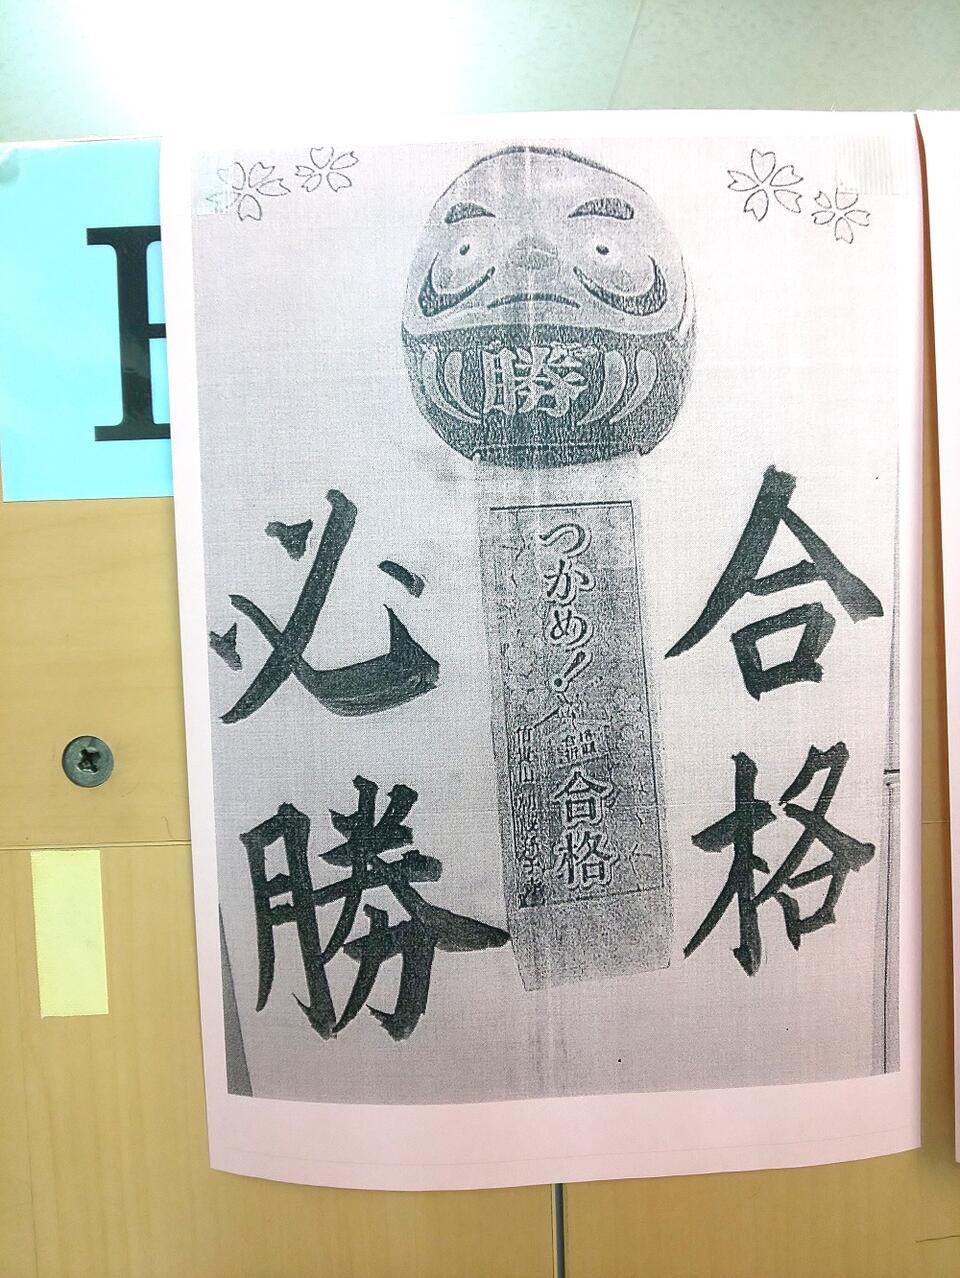 勝
合格
つかめ！
合格
必勝